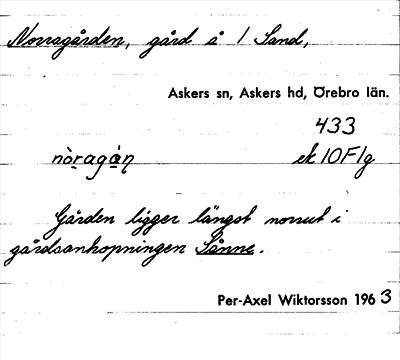 Norragården, gård å 1 Sand,
Askers sn, Askers hd, Örebro län.
433
nòragạ́ṇ ek 10F1g
Gården ligger längst norrut i
gårdsanhopningen Sånne.
Per-Axel Wiktorsson 1963